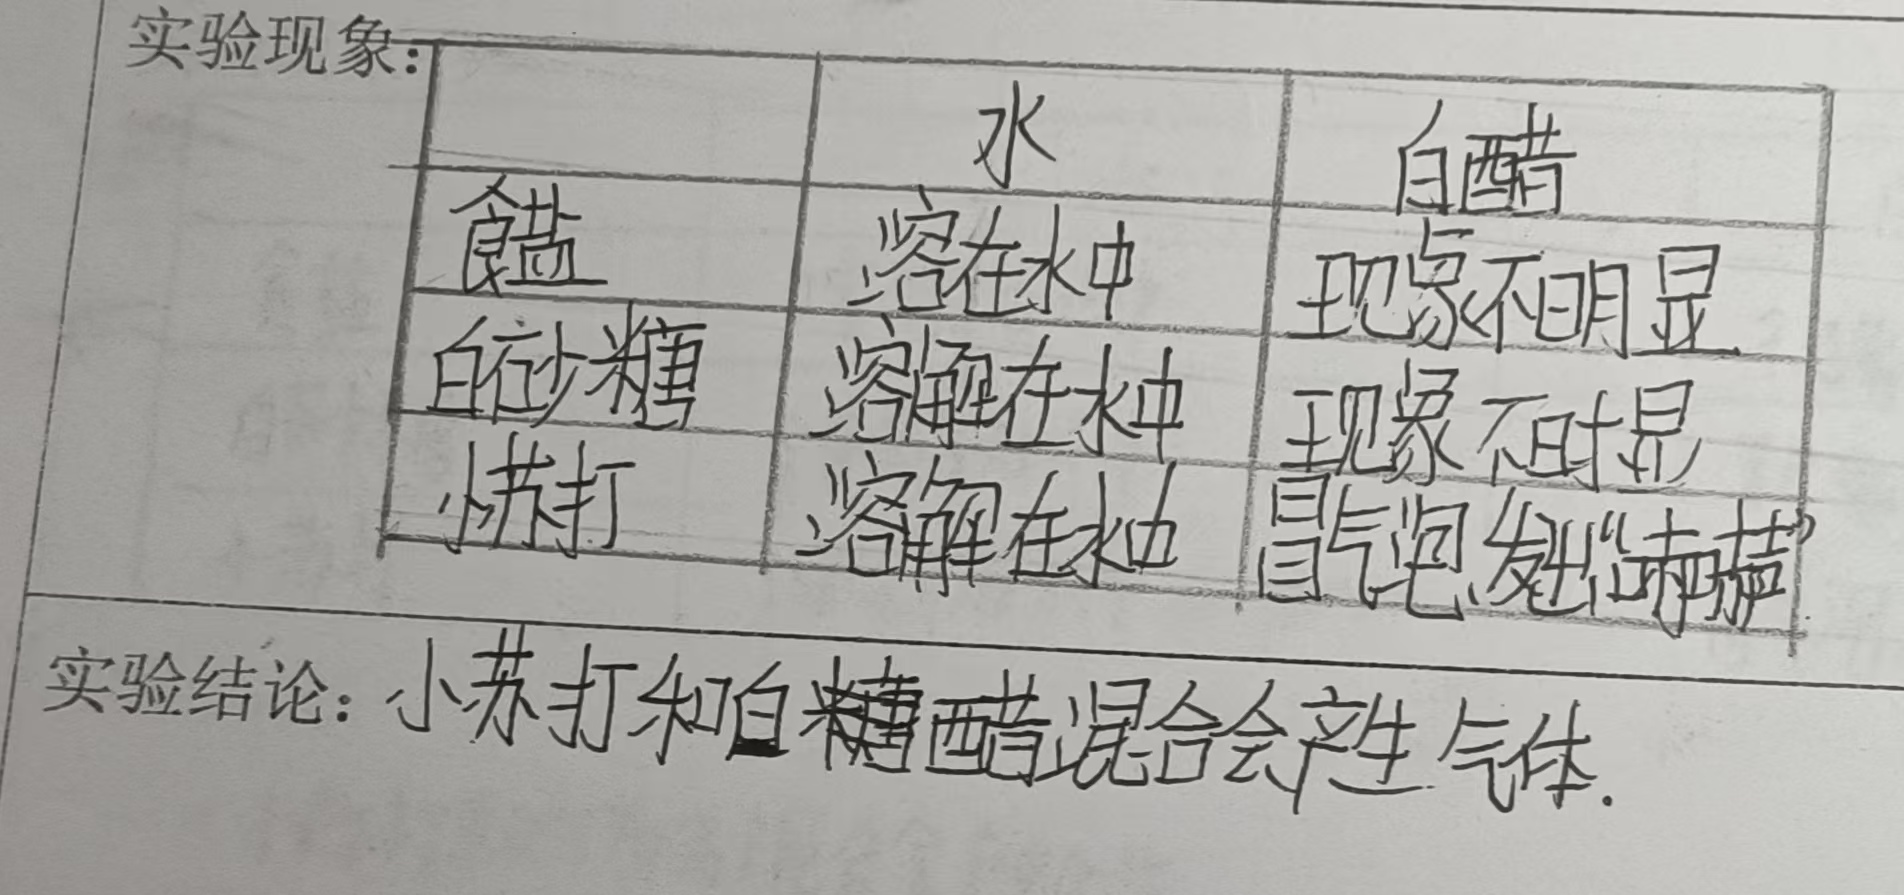 实验现象：
水 白醋
食盐 溶在水中 现象不明显
白砂糖 溶解在水中 现象不明显
小苏打 溶解在水中 冒气泡、发出“
实验结论：小苏打和白醋混合会产生气体.